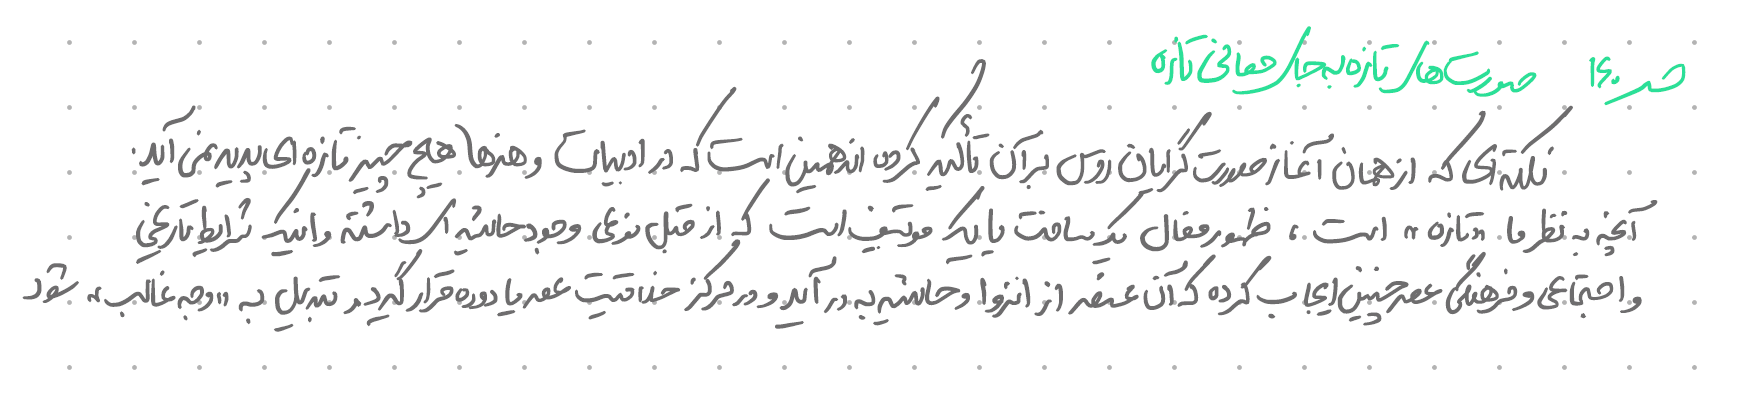 ص ۱۶۰ صورت‌های تازه به جای معانی تازه
نکته‌ای که از همان آغاز صورت‌گرایان روس بر آن تأکید کرده‌اند همین است که در ادبیات و هنرها هیچ چیز تازه‌ای پدید نمی‌آید.
آنچه به نظر ما «تازه» است، ظهور فعال یک ساخت یا یک موتیف است که از قبل نوعی وجود حاشیه‌ای داشته و اینک شرایط تاریخی
و اجتماعی و فرهنگی عصر چنین ایجاب کرده که آن عنصر از انزوا و حاشیه به در آید و در مرکز خلاقیت عصر یا دوره قرار گیرد و تبدیل به «وجه غالب» شود